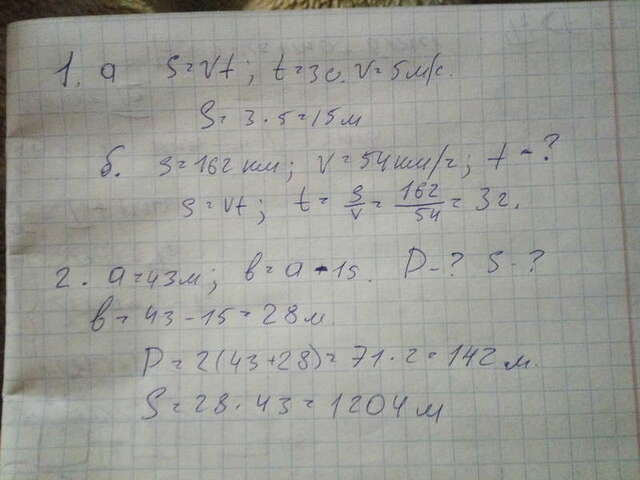 1. а S=Vt; t=3с. V=5м/с.
S=3·5=15м
б. S=162км; V=54км/ч; t-?
S=Vt; t=S/V=162/54=3ч.
2. а=43м; в=а-15. P-? S-?
в=43-15=28м.
P=2(43+28)=71·2=142м.
S=28·43=1204м